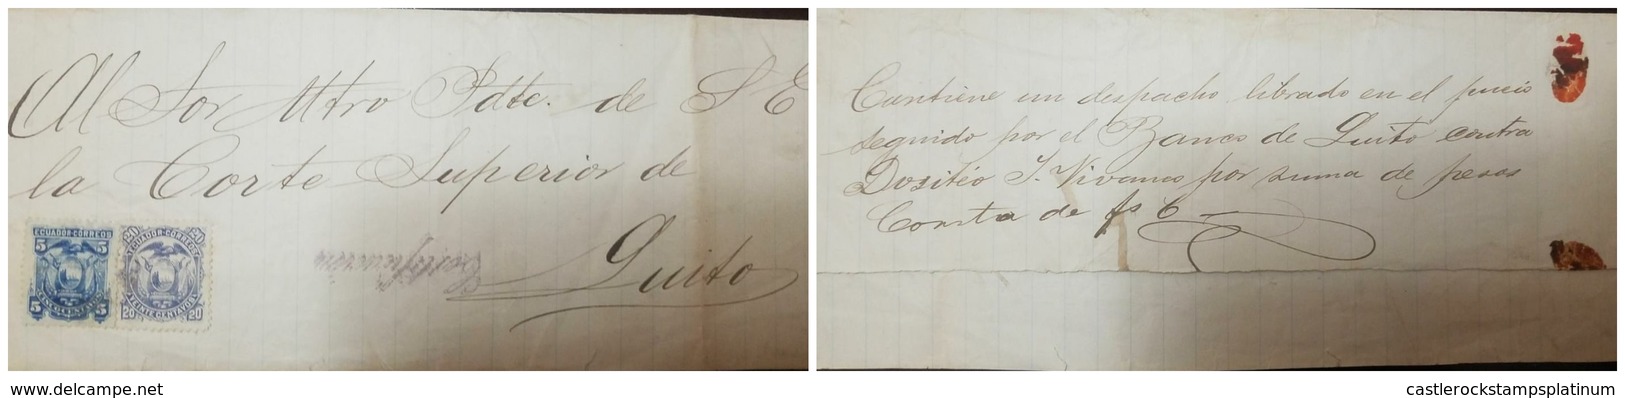 Al Sor Mtro Pdte. de S E
la Corte Superior de
Quito
Certificación
ECUADOR-CORREOS
5 5
5 CINCO CENTAVOS 5
20 20
ECUADOR-CORREOS
VEINTE CENTAVOS
20 20
Contiene un despacho librado en el juicio
seguido por el Banco de Quito contra
Dositéo S. Vivanco por suma de pesos
Consta de fs 6
www.delcampe.net
castlerockstampsplatinum